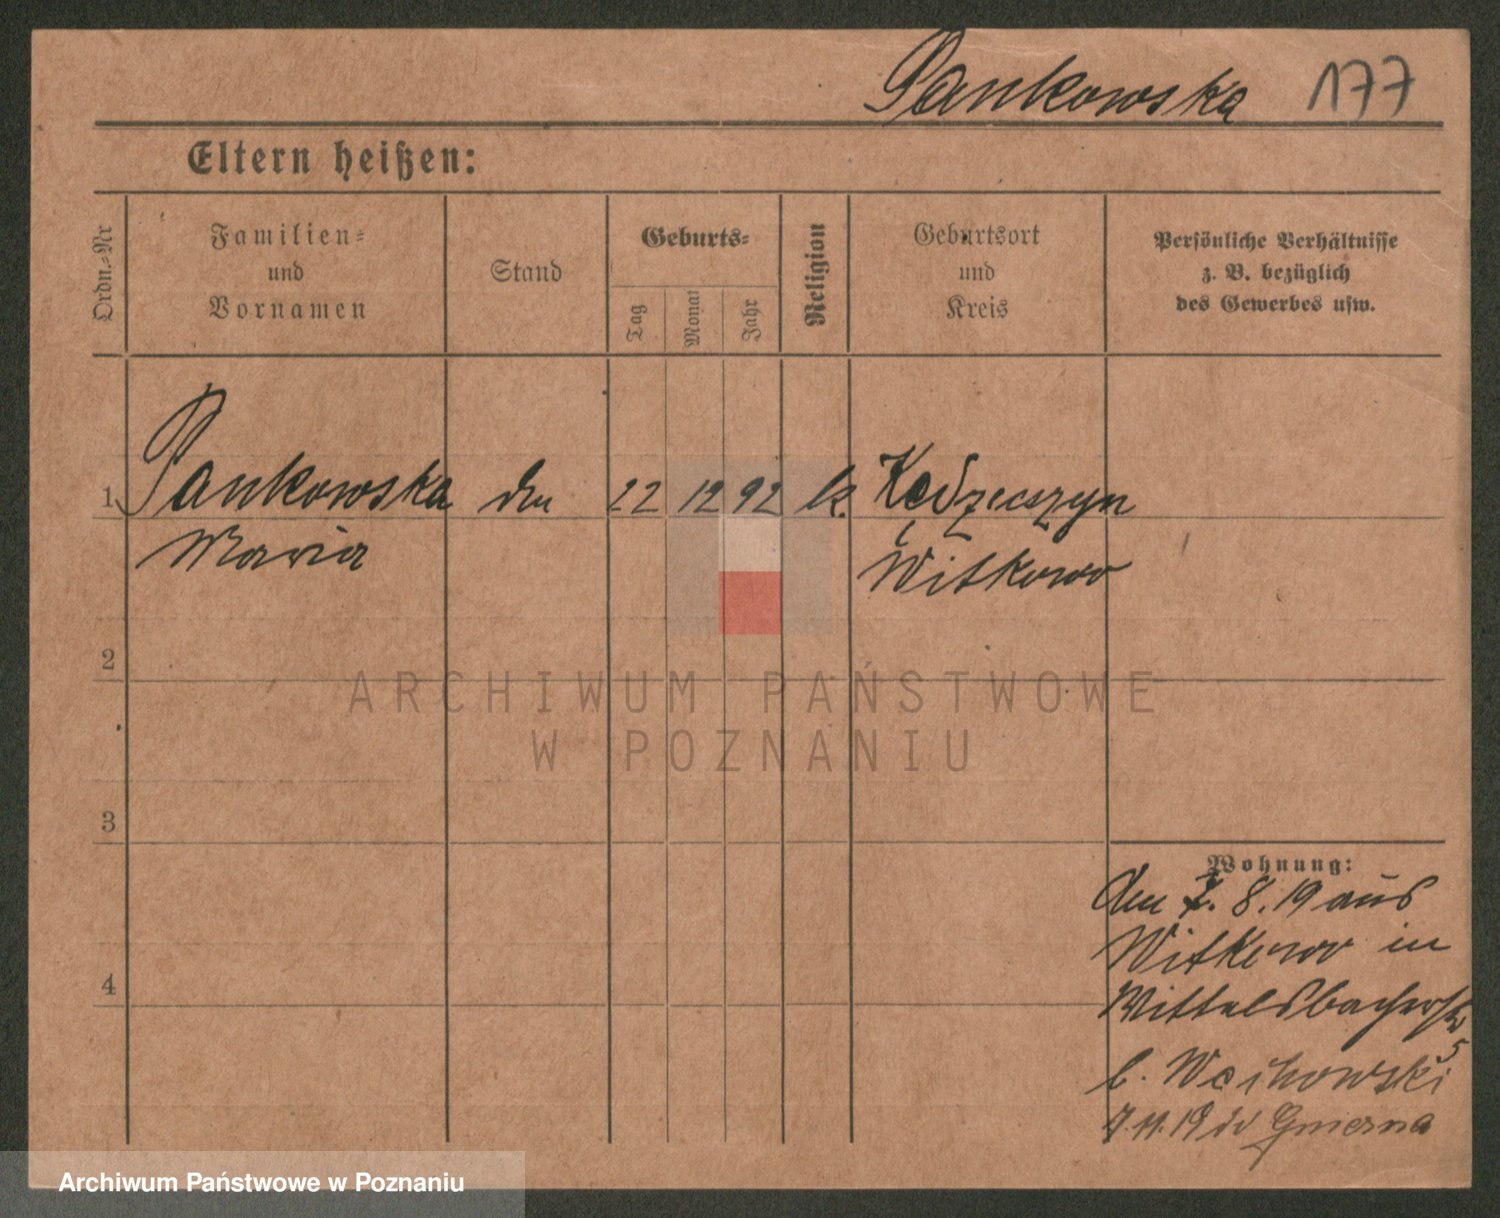 Pankowska 177
Eltern heißen:
Ordn.-Nr
Familien-
und
Vornamen
Stand
Geburts-
Tag
Monat
Jahr
Religion
Geburtsort
und
Kreis
Persönliche Verhältnisse
z. B. bezüglich
des Gewerbes usw.
1 Pankowska 22 12 92 k.
Maria
Witkowo
2
3
4
Wohnung:
den 8. 19 aus
Witkowo in
Wittelsbacherstr
5
b.
7. 11. 19
ARCHIWUM PAŃSTWOWE
W POZNANIU
Archiwum Państwowe w Poznaniu